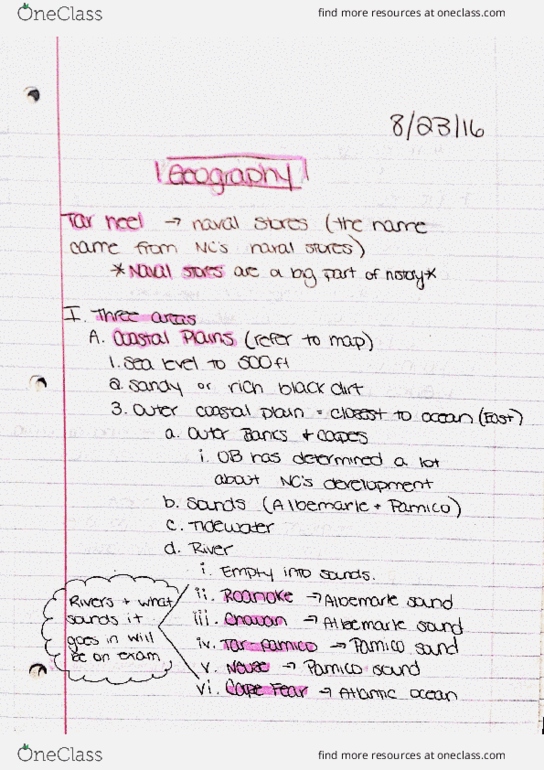 OneClass find more resources at oneclass.com
8/23/16
Geography
Tar heel → naval stores (the name
came from NC's naval stores)
*Naval stores are a big part of history*
I. Three areas
A. Coastal Plains (refer to map)
1. Sea level to 500ft
2. Sandy or rich black dirt
3. Outer coastal plain = closest to ocean (East)
a. Outer Banks + capes
i. OB has determined a lot
about NC's development
b. Sands (Albemarle + Pamico)
c. Tidewater
d. River
i. Empty into sounds.
ii. Roanoke → Albemarle sound
iii. Chowan → Albemarle sound
iv. Tar-Pamico → Pamico sound
v. Neuse → Pamico sound
vi. Cape Fear → Atlantic ocean
Rivers + what
sounds it
goes in will
be on exam
OneClass find more resources at oneclass.com